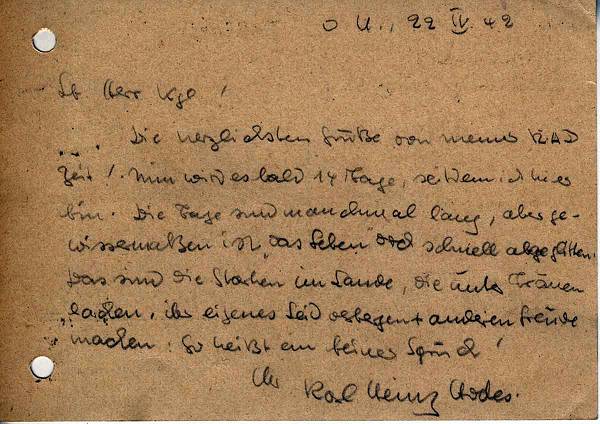 O U., 22 IV. 42
Lb Herr Kge !
Die herzlichsten Grüße von meiner RAD
Zeit! Nun wird es bald 14 Tage, seitdem ich hier
bin. Die Tage sind manchmal lang, aber ge-
wissermaßen ist "das Leben" doch schnell abgeglitten.
Das sind die Starken im Lande, die unter Tränen
lachen, ihr eigenes Leid verbergen + anderen Freude
machen. So heißt ein feiner Spruch!
Ihr Karl Heinz